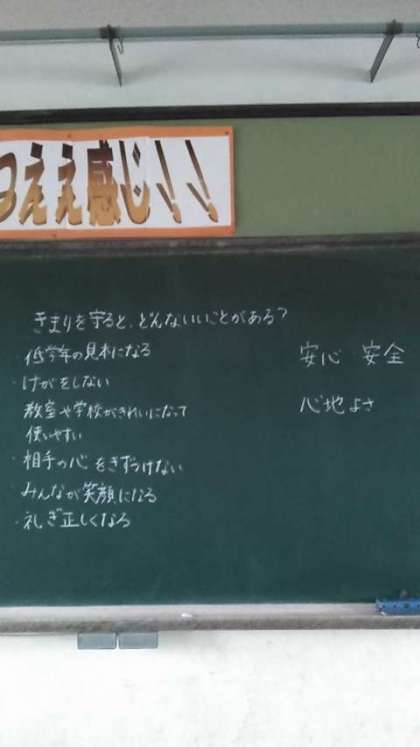 つええ感じ!!
きまりを守ると、どんないいことがある?
低学年の見本になる
・けがをしない
教室や学校がきれいになって
使いやすい
・相手の心をきずつけない
・みんなが笑顔になる
・礼ぎ正しくなる
安心 安全
心地よさ